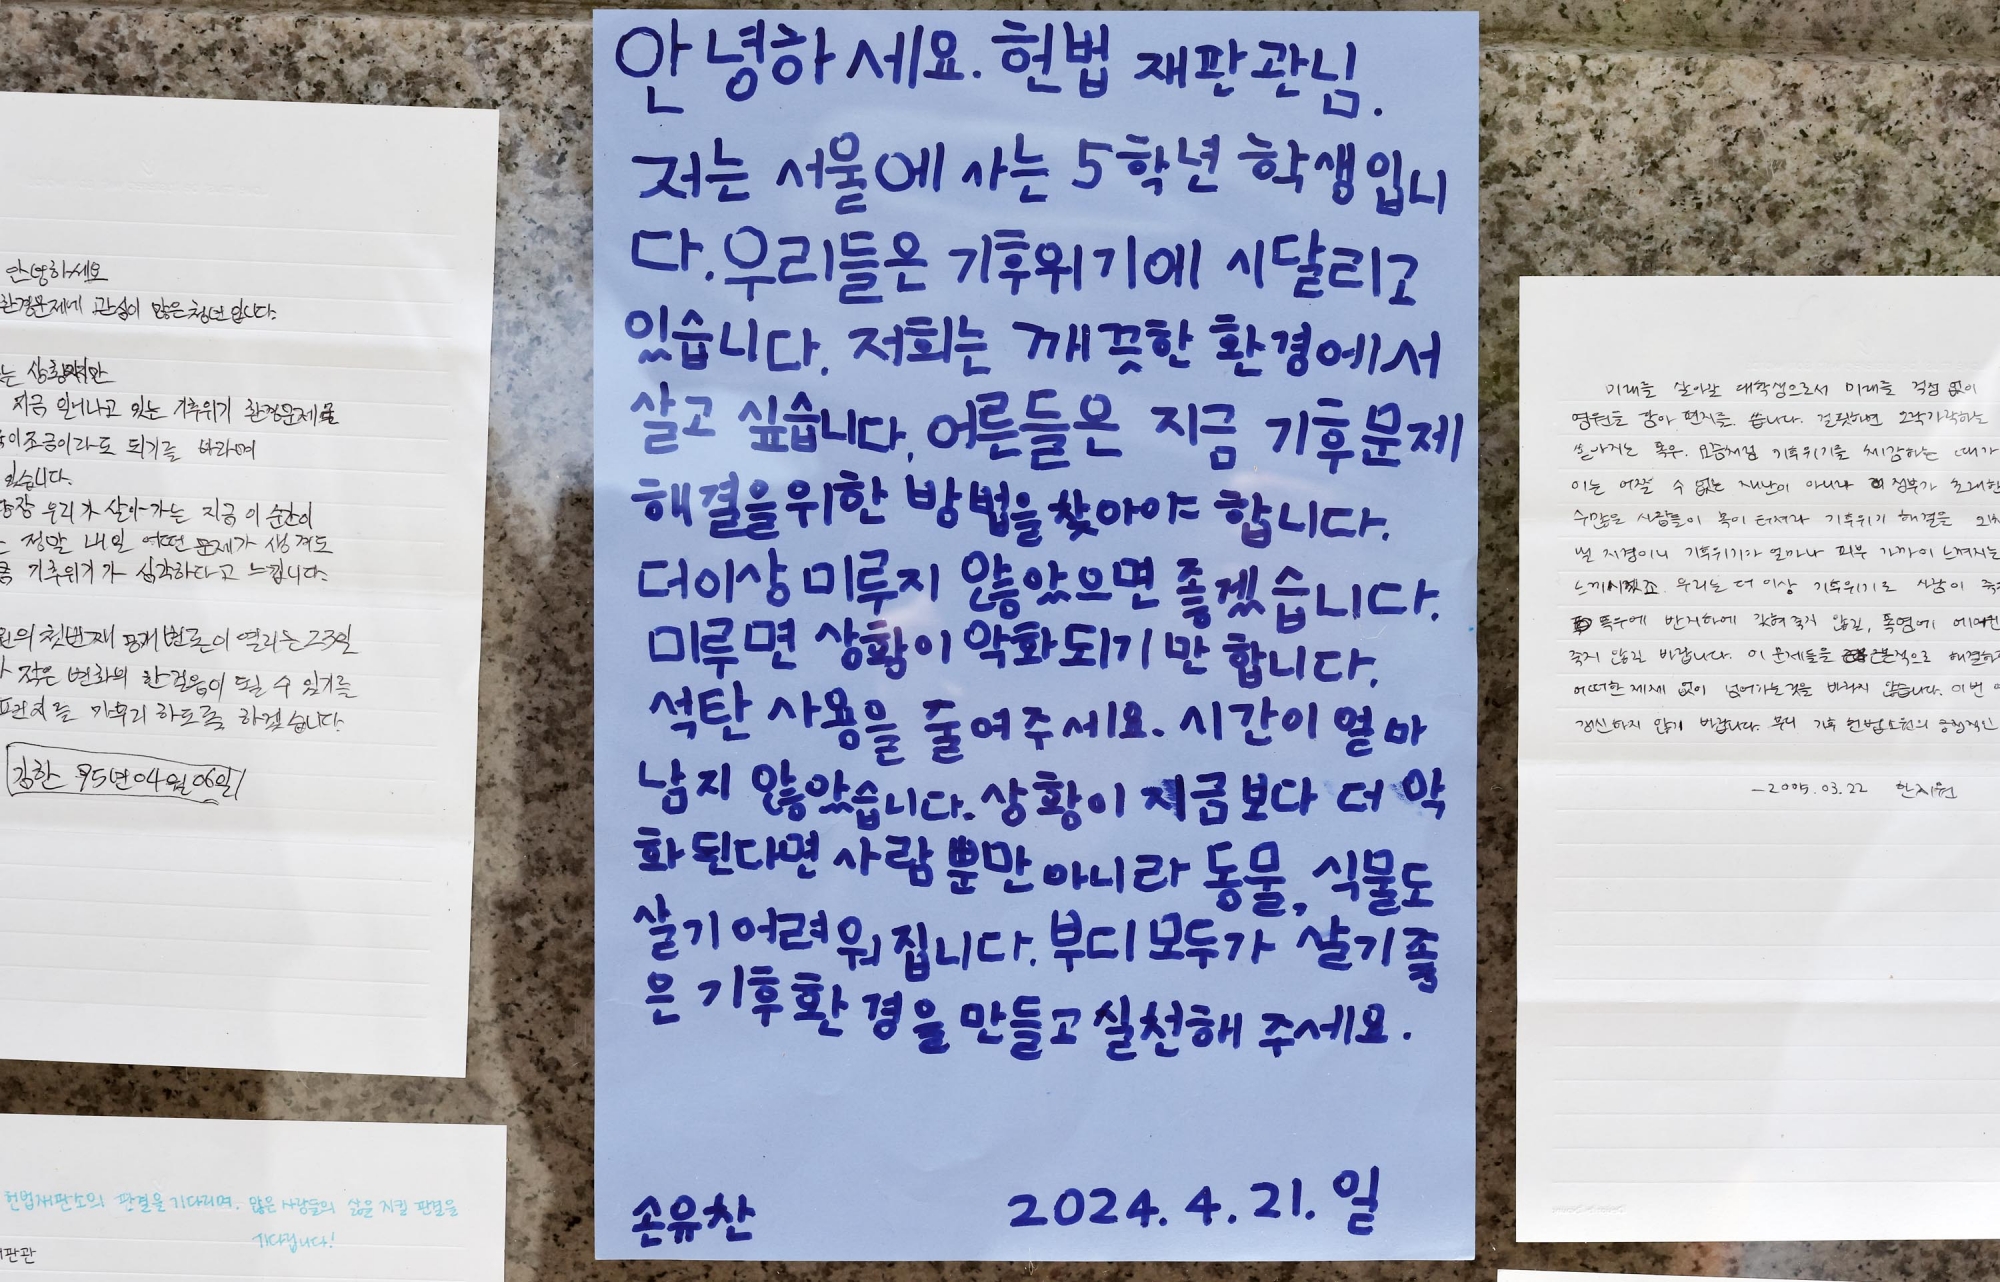 안녕하세요. 헌법 재판관님.
저는 서울에 사는 5학년 학생입니
다. 우리들은 기후위기에 시달리고
있습니다. 저희는 깨끗한 환경에서
살고 싶습니다. 어른들은 지금 기후문제
해결을위한 방법을 찾아야 합니다.
더이상 미루지 않았으면 좋겠습니다.
미루면 상황이 악화되기만 합니다.
석탄 사용을 줄여주세요. 시간이 얼마
남지 않았습니다. 상황이 지금보다 더 악
화된다면 사람 뿐만 아니라 동물, 식물도
살기어려워집니다. 부디 모두가 살기좋
은 기후환경을 만들고 실천해 주세요.
손유찬 2024. 4. 21. 일
안녕하세요
환경문제에 관심이 많은 청년입니다.
는
지금 일어나고 있는 기후위기 환경문제
조금이라도 되기를 바라며
있습니다.
당장 우리가 살아가는 지금 이 순간이
정말 내일 어떤 문제가 생겨도
기후위기가 심각하다고 느낍니다.
의 첫번째 공개변론이 열리는 23일
작은 변화의 한걸음이 될 수 있기를
편지를 마무리 하도록 하겠습니다.
김한 95년04월06일
헌법재판소의 판결을 기다리며, 많은 사람들의 삶을 지킬 판결을
기다립니다!
재판관
미래를 살아갈 대학생으로서 미래를 걱정 없이
염원을 담아 편지를 씁니다. 걸핏하면 오락가락하는
쏟아지는 폭우. 요즘처럼 기후위기를 체감하는 때가
이는 어쩔 수 없는 재난이 아니라 정부가 초래한
수많은 사람들이 목이 터져라 기후위기 해결을
지경이니 기후위기가 얼마나 피부 가까이 느껴지는
느끼시겠죠. 우리는 더 이상 기후위기로 사람이
폭우에 반지하에 갇혀 죽지 않길, 폭염에
죽지 않길 바랍니다. 이 문제들을 해결하
어떠한 제제 없이 넘어가는것을 바라지 않습니다. 이번
갱신하지 않기 바랍니다. 부디 기후 헌법소원의 긍정적인
한지원